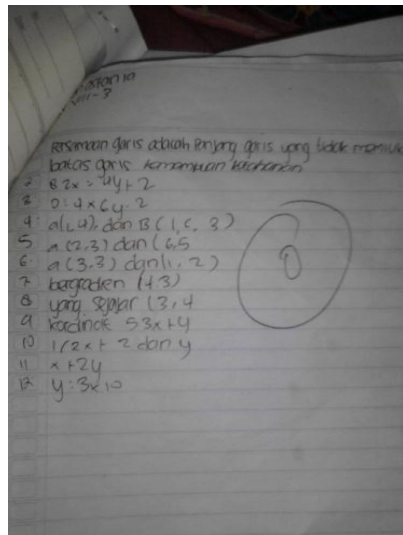 VIII-3
Persamaan garis adalah Panjang garis yang tidak memiliki
batas garis
2 B 2x = 4y + 2
3 0 = 4 x 6y - 2
4. a(1,4). dan B (1, 6, 3)
5 a (2,3) dan (6,5
6. a (3.3) dan (1, 2)
7 bergradien (4.3)
8 yang sejajar (3,4
9 kordinat 53x+4
10 1/2x + 2 dan y
11 x+2y
12 y = 3x10
0